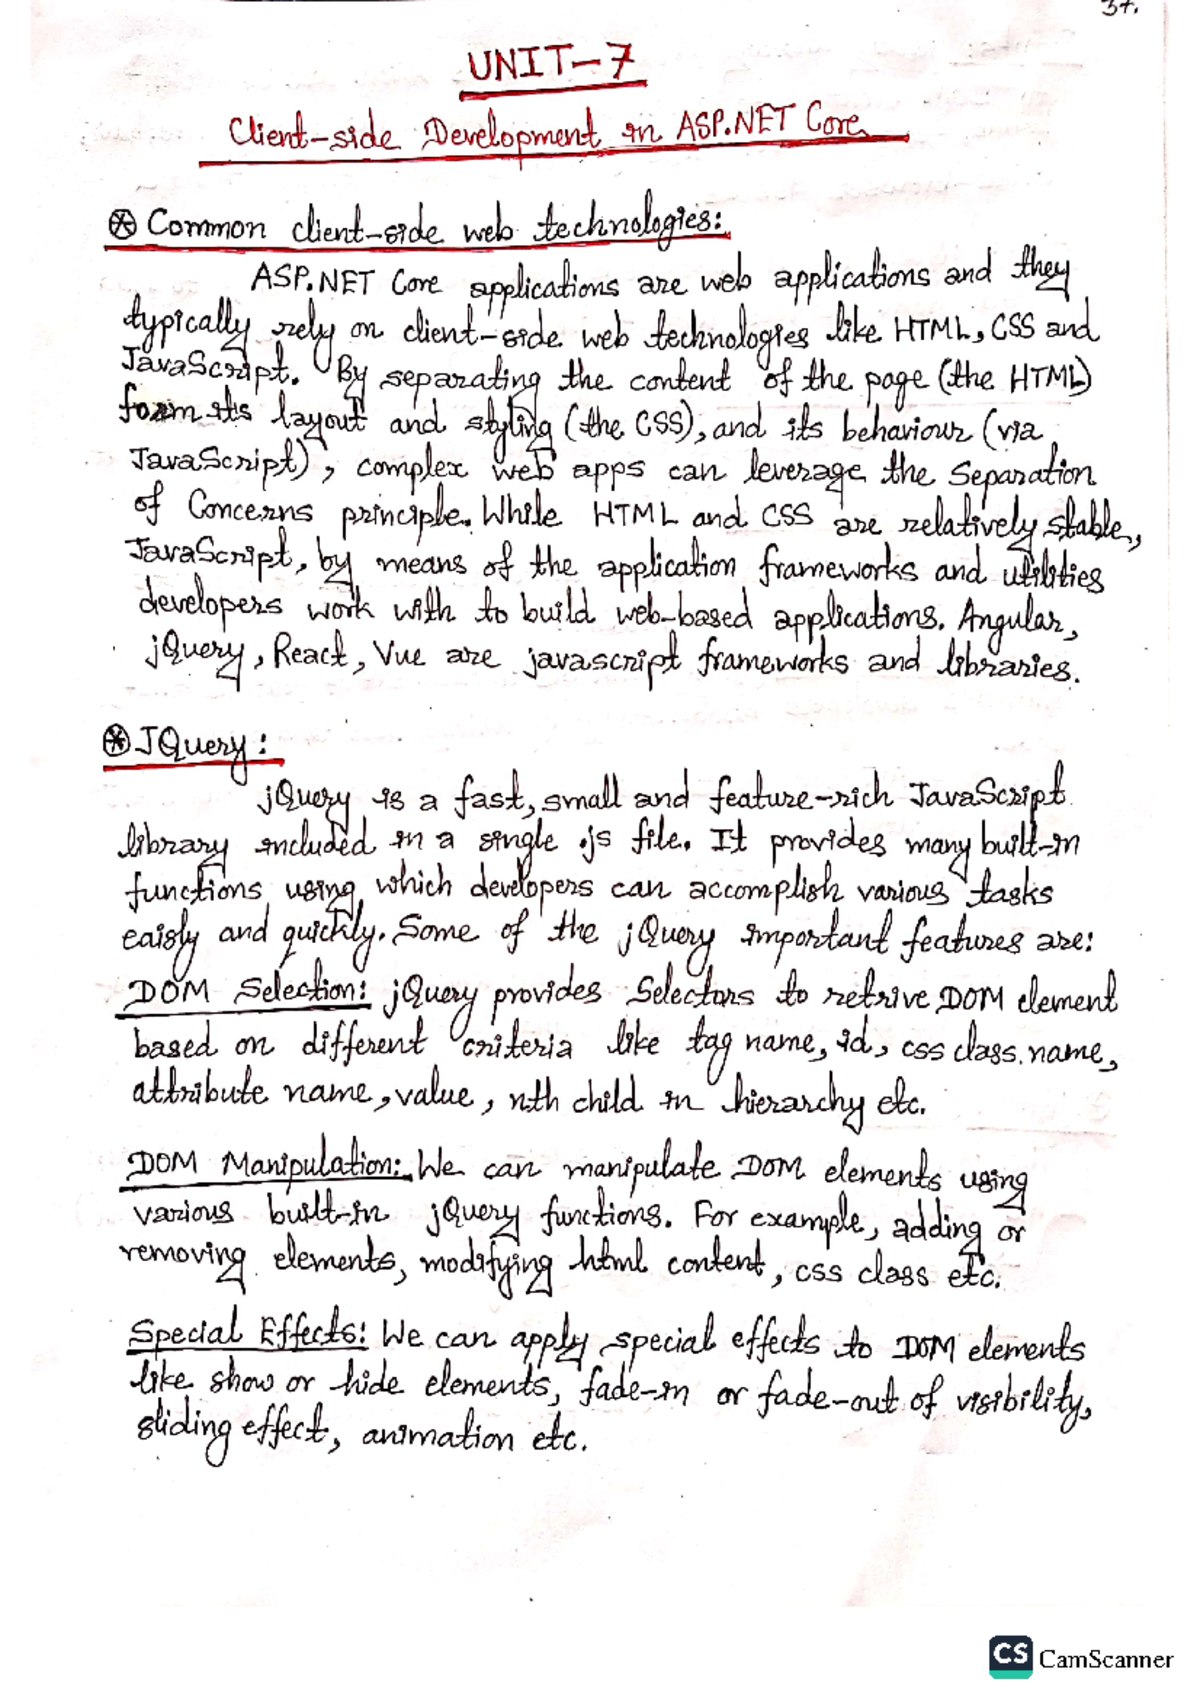 37.
UNIT-7
Client-side Development in ASP.NET Core
⊛ Common client-side web technologies:
ASP.NET Core applications are web applications and they
typically rely on client-side web technologies like HTML, CSS and
JavaScript. By separating the content of the page (the HTML)
form its layout and styling (the CSS), and its behaviour (via
JavaScript), complex web apps can leverage the Separation
of Concerns principle. While HTML and CSS are relatively stable,
JavaScript, by means of the application frameworks and utilities
developers work with to build web-based applications. Angular,
jQuery, React, Vue are javascript frameworks and libraries.
⊛ JQuery:
jQuery is a fast, small and feature-rich JavaScript
library included in a single .js file. It provides many built-in
functions using which developers can accomplish various tasks
eaisly and quickly. Some of the jQuery important features are:
DOM Selection: jQuery provides Selectors to retrive DOM element
based on different criteria like tag name, id, css class name,
attribute name, value, nth child in hierarchy etc.
DOM Manipulation: We can manipulate DOM elements using
various built-in jQuery functions. For example, adding or
removing elements, modifying html content, css class etc.
Special Effects: We can apply special effects to DOM elements
like show or hide elements, fade-in or fade-out of visibility,
sliding effect, animation etc.
CS CamScanner